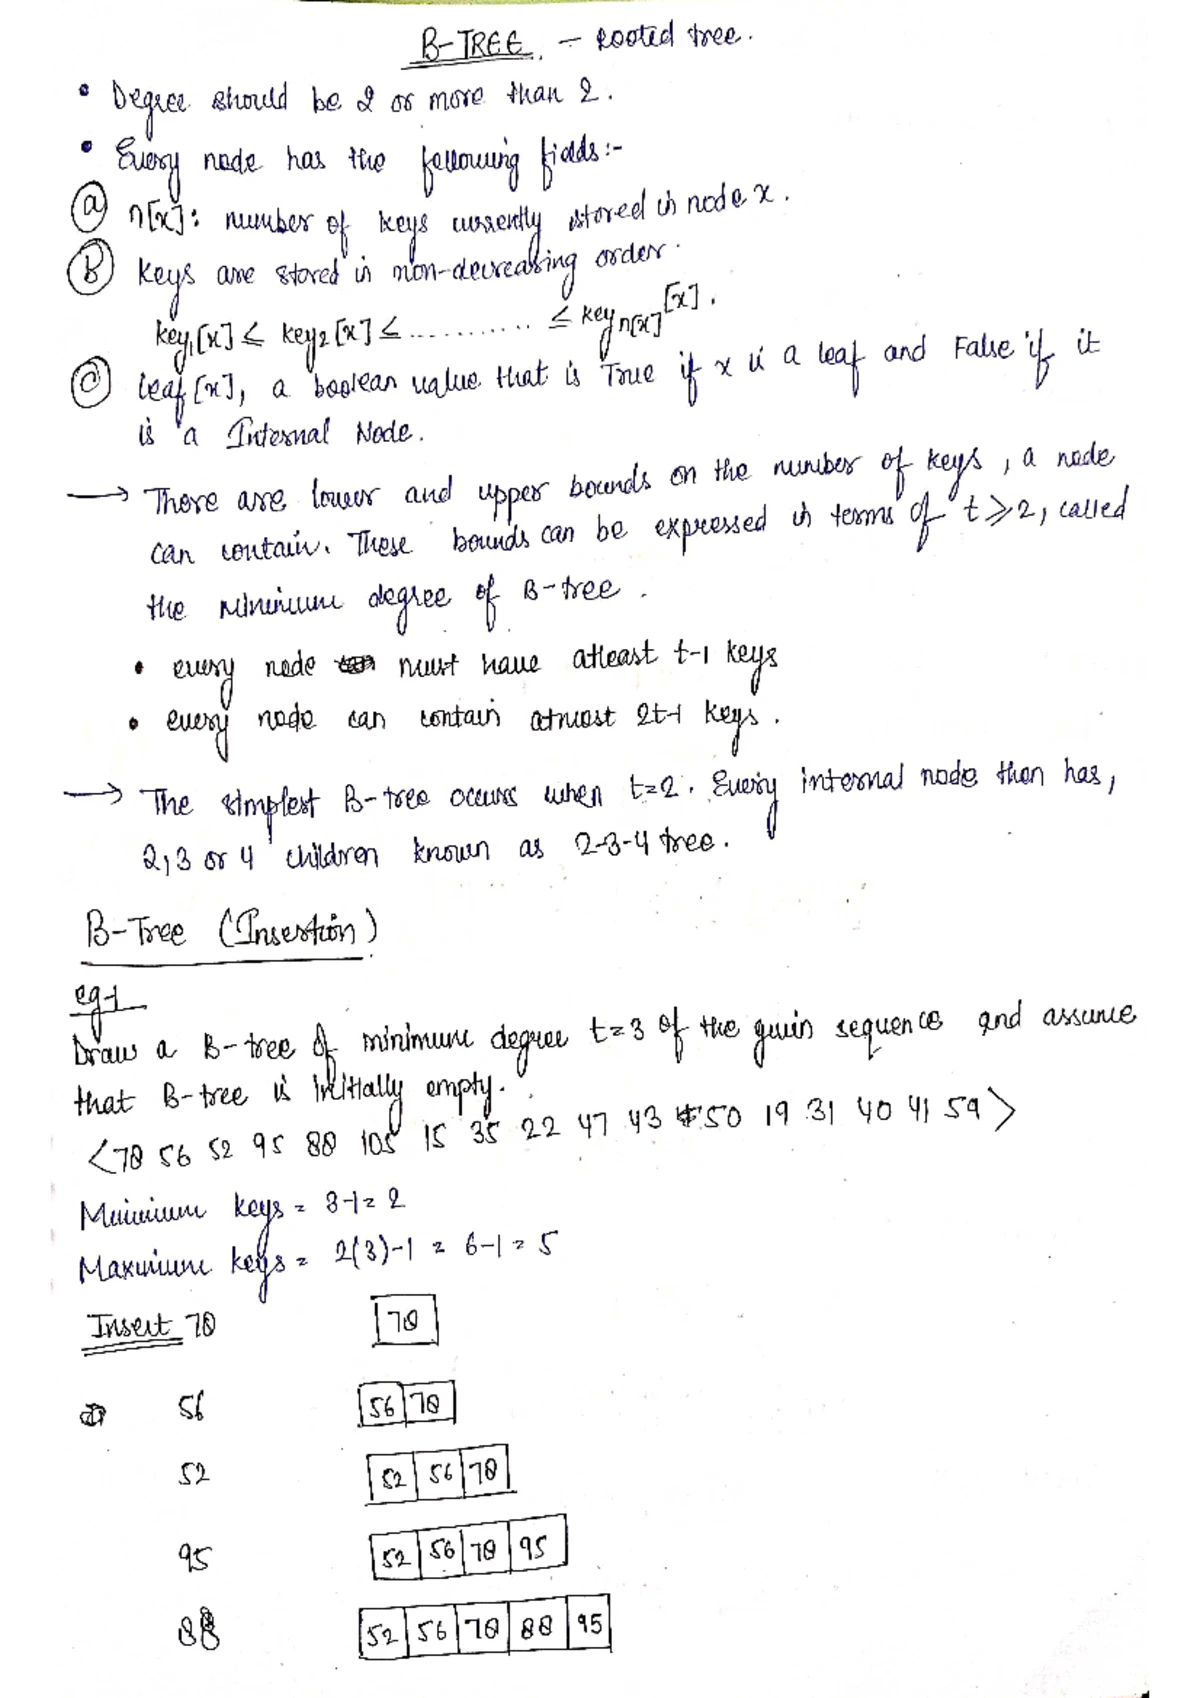 B-TREE. - Rooted tree.
• Degree should be 2 or more than 2.
• Every node has the following fields:-
(a) n[x]: number of keys currently stored in node x.
(B) keys are stored in non-decreasing order.
key1[x] ≤ key2[x] ≤ ........... ≤ key n[x] [x].
(C) leaf[x], a boolean value that is True if x is a leaf and False if it
is a Internal Node.
→ There are lower and upper bounds on the number of keys, a node
can contain. These bounds can be expressed in terms of t ≥ 2, called
the minimum degree of B-tree.
• every node must have atleast t-1 keys
• every node can contain atmost 2t-1 keys.
→ The simplest B-tree occurs when t=2. Every internal node then has,
2,3 or 4 children known as 2-3-4 tree.
B-Tree (Insertion)
eg-1
Draw a B-tree of minimum degree t=3 of the given sequence and assume
that B-tree is initially empty.
<78 56 52 95 88 105 15 35 22 47 43 50 19 31 40 41 59>
Minimum keys = 3-1 = 2
Maximum keys = 2(3)-1 = 6-1 = 5
Insert 78 78
56 56 78
52 52 56 78
95 52 56 78 95
88 52 56 78 88 95